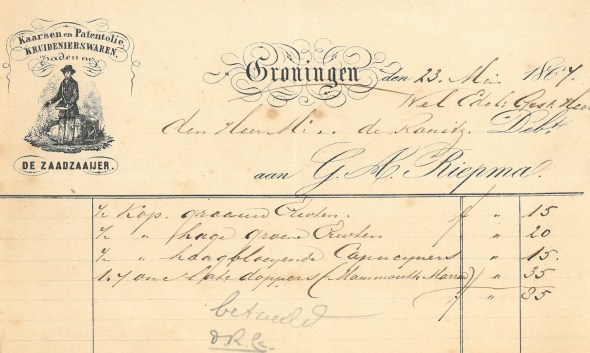 Kaarsen en Patentolie
KRUIDENIERSWAREN,
Zaden enz.
DE ZAADZAAIJER.
Groningen den 23 Mei 1867.
Wel Edele Gest. Heer
den Heer Mr. de Ranitz Debt
aan G. A. Riepma.
½ Kop. graauwe Erwten. f " 15
½ " hage groene Erwten " 20
½ " haagbloeyende Capucyners " 15.
1.7 onc late doppers (Mammouth Marrow) " 35
f " 85
betaald